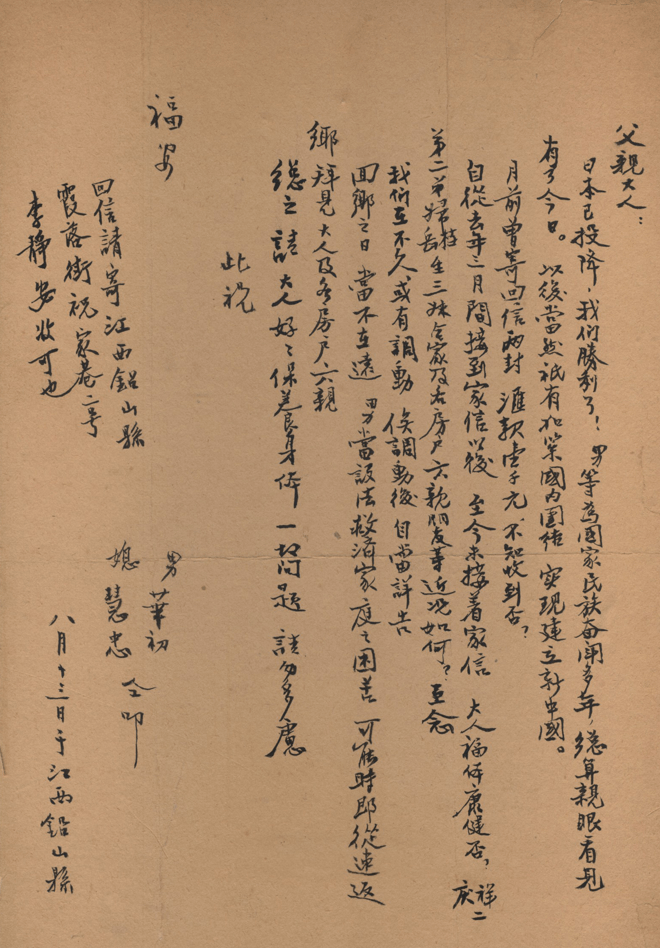 父親大人：
日本已投降，我们勝利了！男等為國家民族奋闹多年，總算親眼看見
有了今日。以後當然祇有加築國内團结 实現建立新中國。
月前曾寄回信两封 滙款壹千元 不知收到否？
自從去年三月間接到家信以後 至今未接着家信 大人福体康健否，祥二
庆
第二弟婦 岳生三妹合家及各房戶六親朋友等近况如何？至念
我们在不久或有調動 俟調動後自當詳告
回鄉之日 當不在遠 男當設法救濟家庭之困苦 可能時即從速返
鄉拜見大人及各房戶六親
總之 請大人好之保养身体 一切问题 請勿多慮
此祝
福安
男 華初
媳 慧忠 仝叩
八月十三日于江西鉛山縣
回信請寄江西鉛山縣
霞落街祝家巷二号
李静安收可也